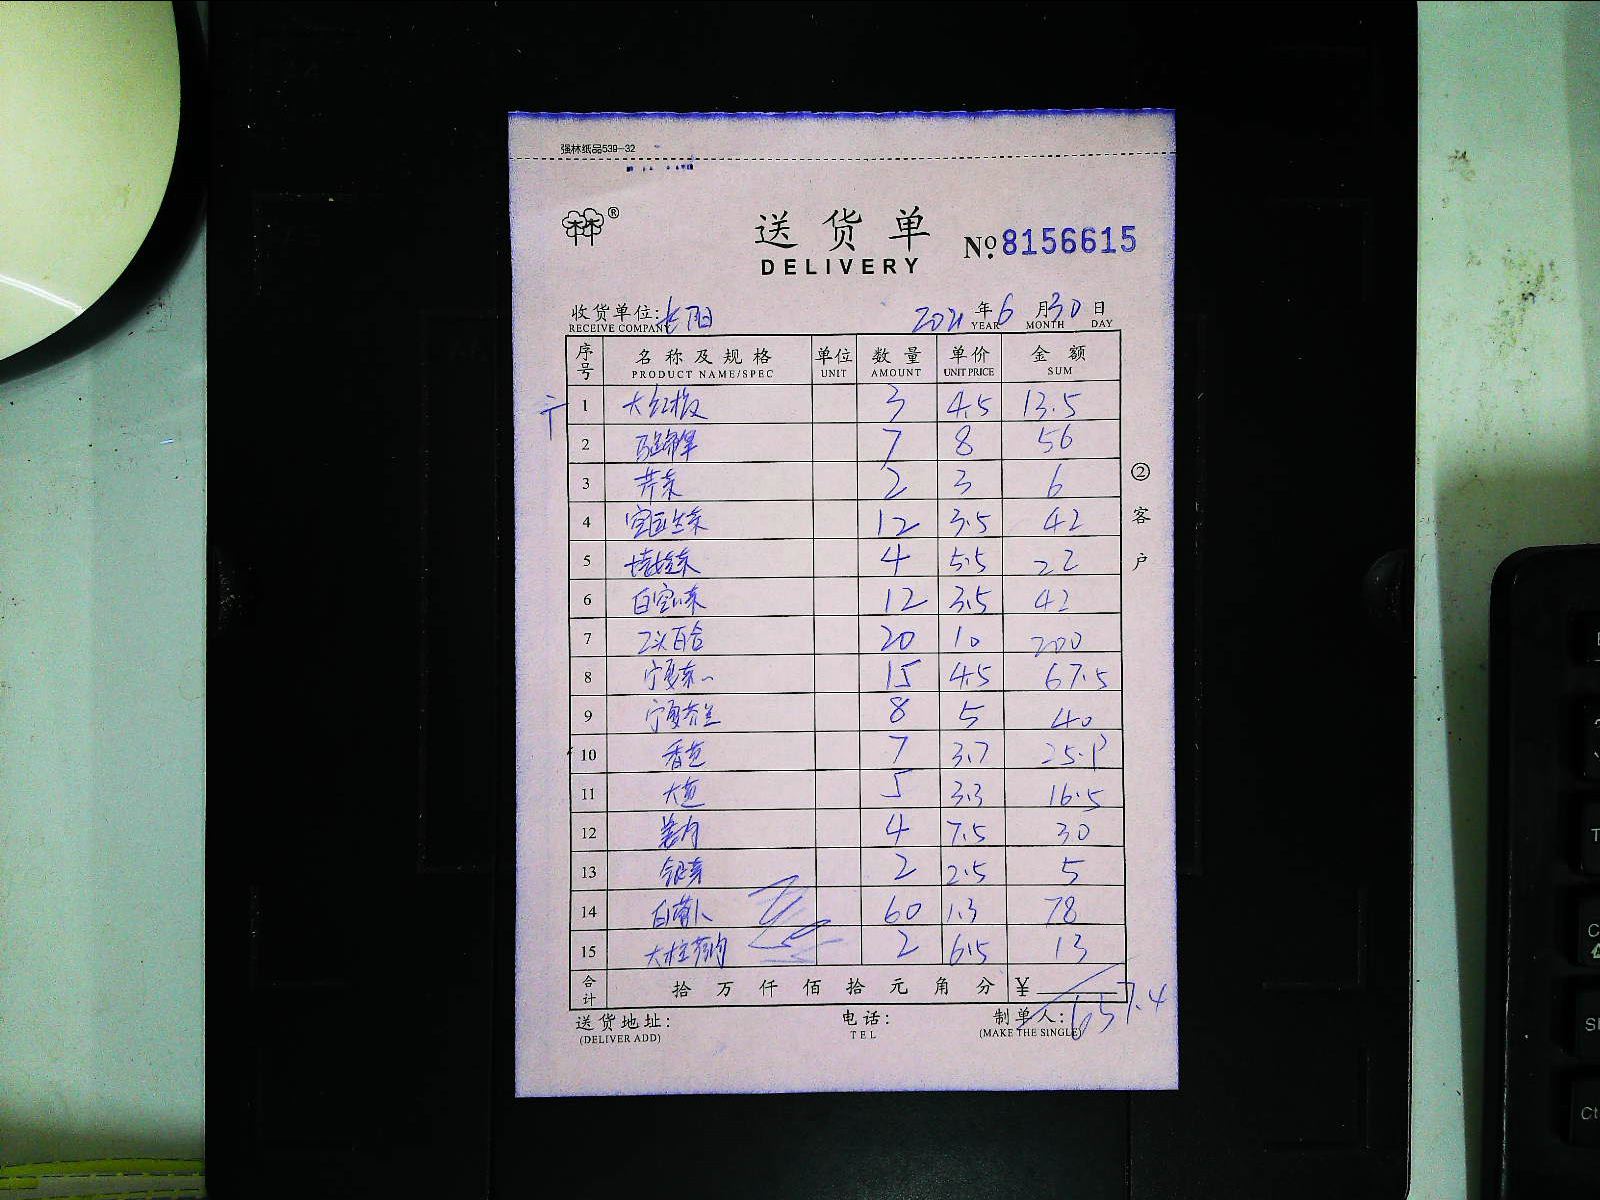 强林纸品539-32
®
送货单
DELIVERY
No.8156615
收货单位:长阳 2021年6月30日
RECEIVE COMPANY YEAR MONTH DAY
序号 名称及规格 单位 数量 单价 金额
PRODUCT NAME/SPEC UNIT AMOUNT UNIT PRICE SUM
1 大红椒 3 4.5 13.5
2 7 8 56
3 芹菜 2 3 6
4 12 3.5 42
5 4 5.5 22
6 12 3.5 42
7 百合 20 10 200
8 宁夏菜 15 4.5 67.5
9 宁夏芥兰 8 5 40
10 香芹 7 3.7 25.9
11 大 5 3.3 16.5
12 姜肉 4 7.5 30
13 银芽 2 2.5 5
14 白萝卜 60 1.3 78
15 2 6.5 13
合计 拾万仟佰拾元角分 ¥ 657.4
送货地址: 电话: 制单人:
(DELIVER ADD) TEL (MAKE THE SINGLE)
②客户